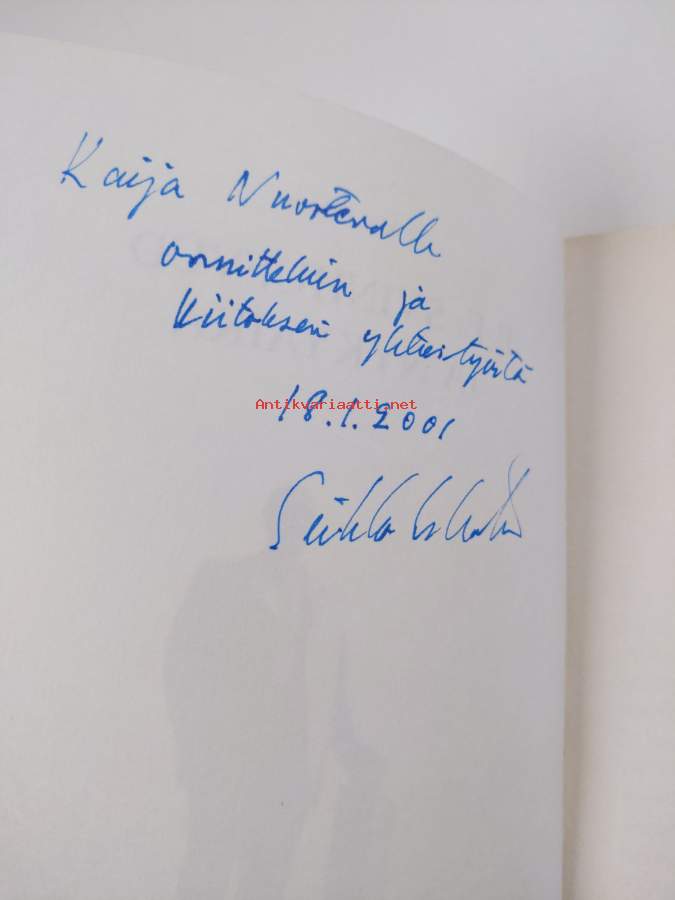 Kaija Nuortevalle
onnitteluin ja
Kiitoksen yhteistyöstä
Antikvariaatti.net
18.1.2001